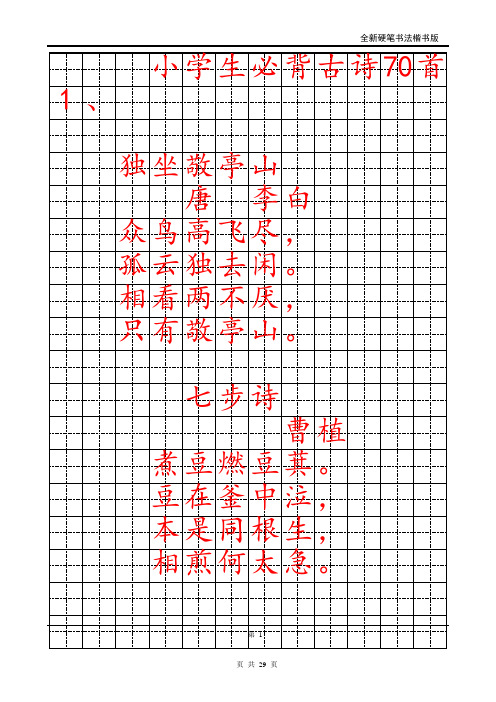 全新硬笔书法楷书版
小学生必背古诗70首
1、
独坐敬亭山
唐 李白
众鸟高飞尽，
孤云独去闲。
相看两不厌，
只有敬亭山。
七步诗
曹植
煮豆燃豆萁。
豆在釜中泣，
本是同根生，
相煎何太急。
第 1
页 共 29 页